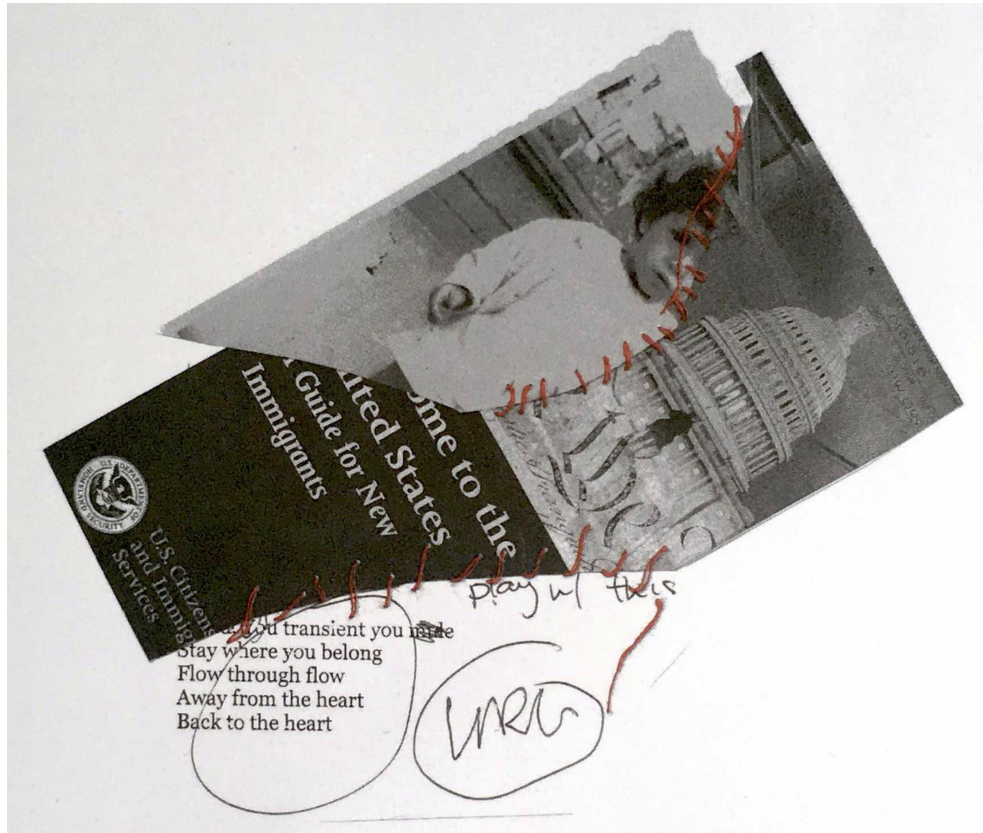 ome to the
ited States
Guide for New
Immigrants
U.S. DEPARTMENT OF HOMELAND SECURITY
U.S. Citizens
and Immig
Services
play w/ this
you transient you
Stay where you belong
Flow through flow
Away from the heart
Back to the heart